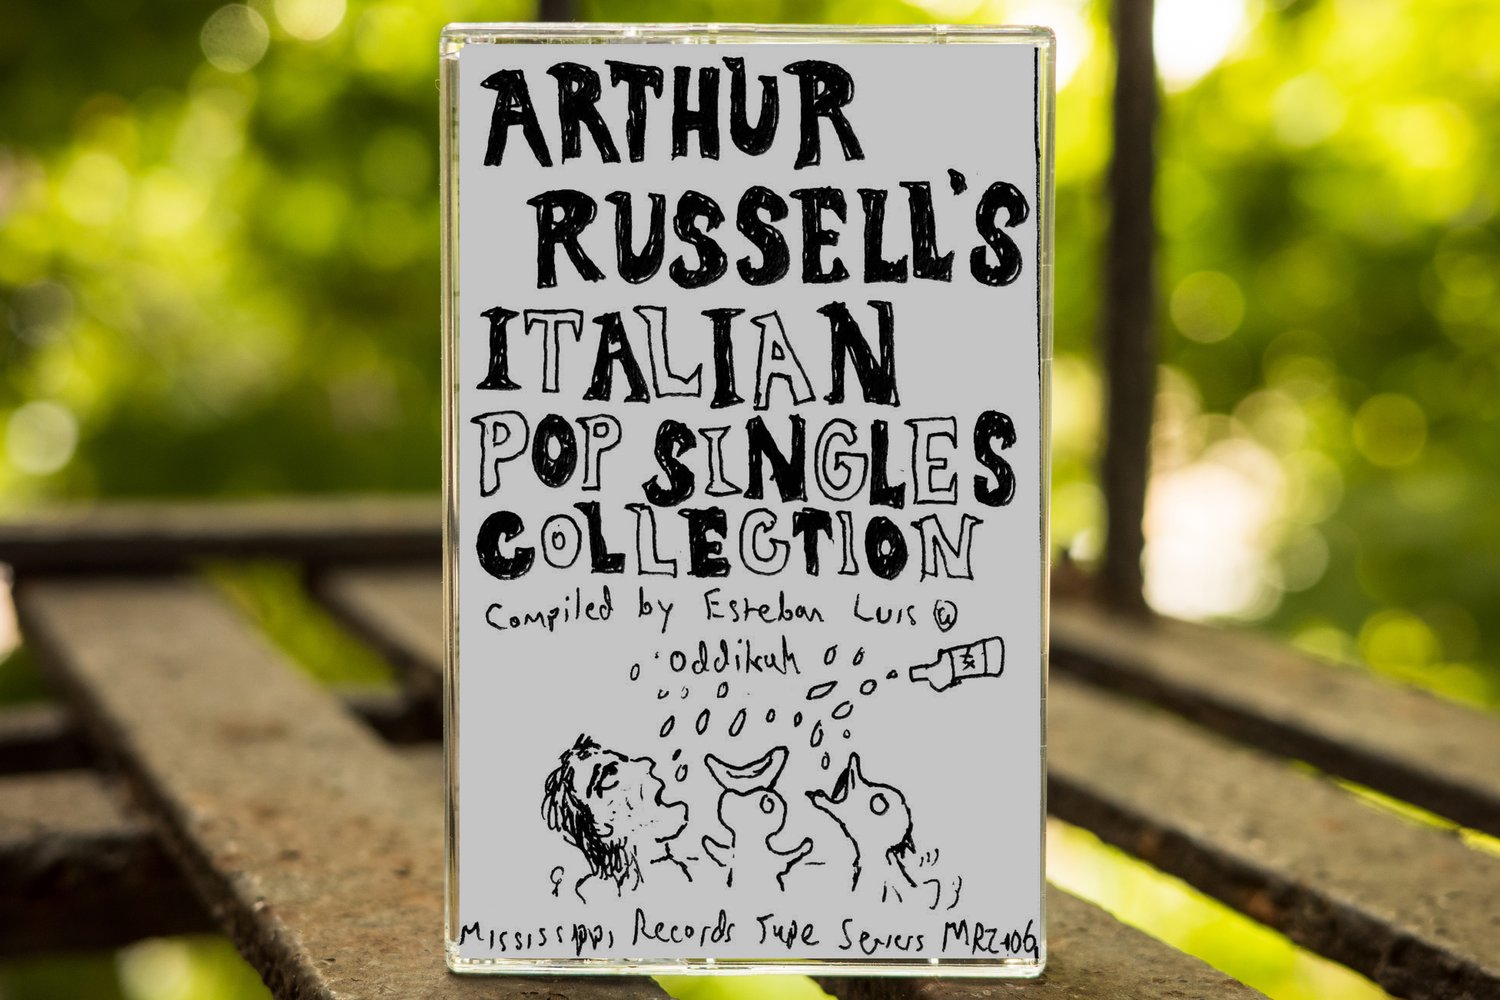 ARTHUR
RUSSELL'S
ITALIAN
POP SINGLES
COLLECTION
Compiled by Esteban Luis @
Oddikuh
Mississippi Records Tape Series